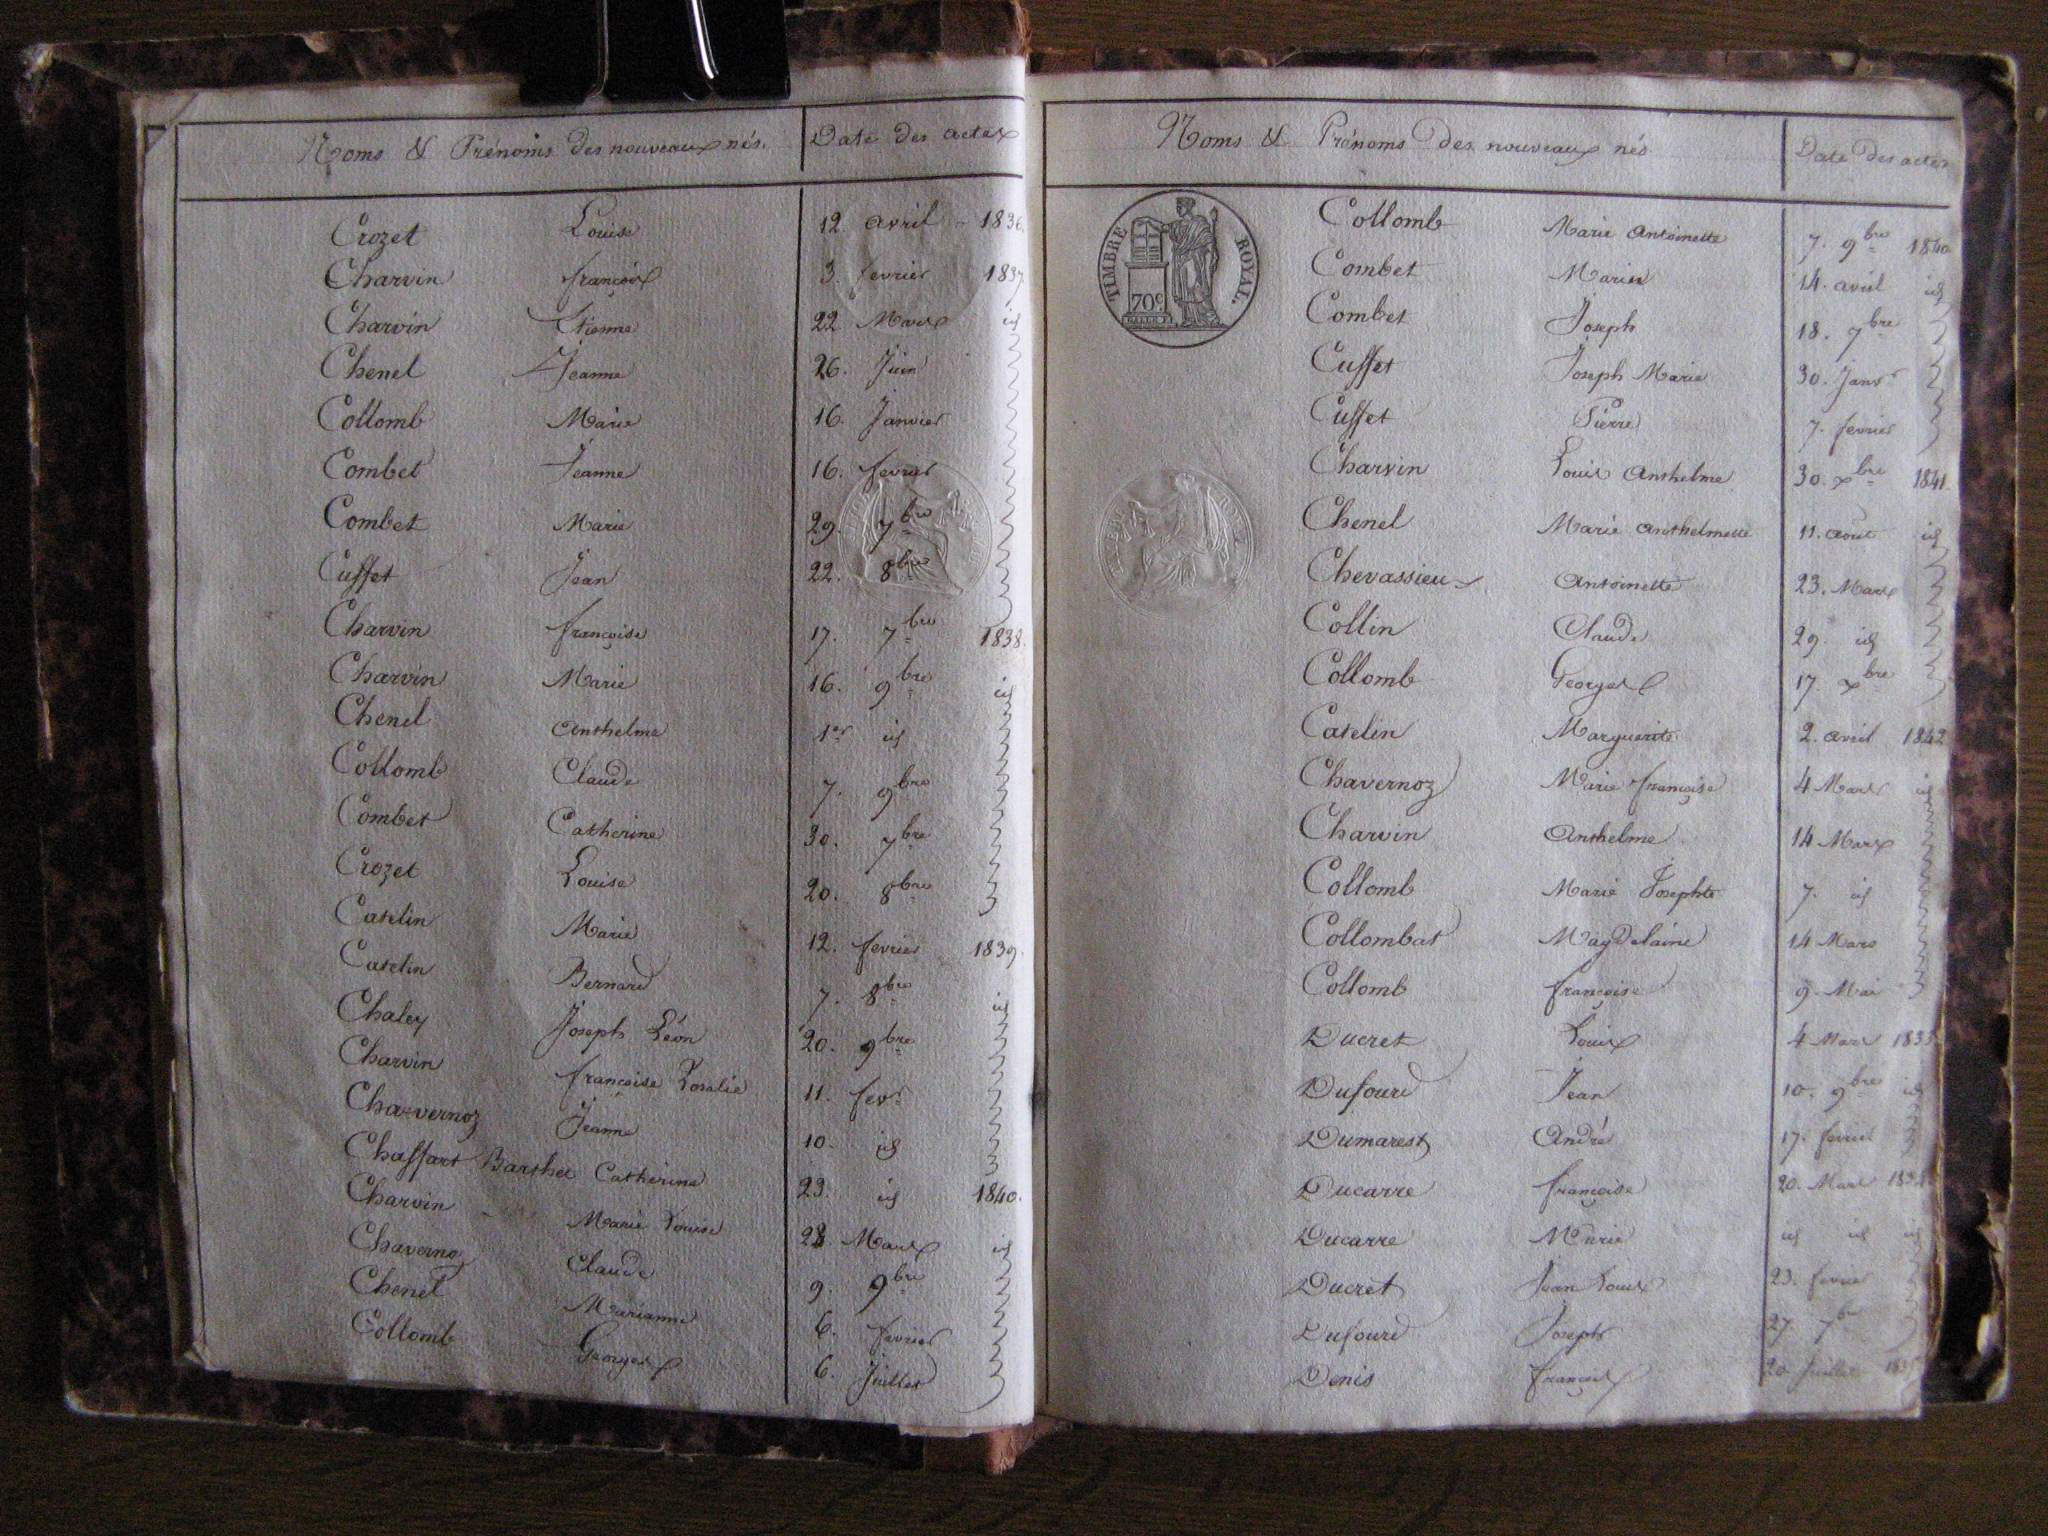 Noms & Prénoms des nouveaux nés. Date des actes
Crozet Louise 12 avril 1836.
Charvin françois 3. fevrier 1837
Charvin Etienne 22 Mars id
Chenel Jeanne 26. Juin
Collomb Marie 16. Janvier
Combet Jeanne 16. fevrier
Combet Marie 29. 7bre
Cuffet Jean 22. 8bre
Charvin françoise 17. 7bre 1838.
Charvin Marie 16. 9bre id
Chenel Anthelme 1er id
Collomb Claude 7. 9bre
Combet Catherine 30. 7bre
Crozet Louise 20. 8bre
Catelin Marie 12. fevrier 1839.
Catelin Bernard 7. 8bre id
Chaley Joseph Léon 20. 9bre
Charvin françoise Rosalie 11. fevr
Chavernoz Jeanne 10. id
Chaffart Barthet Catherine 23. id 1840.
Charvin Marie Louise 28 Mars id
Chavernoz Claude 9. 9bre
Chenel Marianne 6. fevrier
Collomb Georges 6. Juillet
Noms & Prénoms des nouveaux nés Date des actes
TIMBRE ROYAL.
70c.
Collomb Marie Antoinette 7. 9bre 1840
Combet Marie 14. avril id
Combet Joseph 18. 7bre
Cuffet Joseph Marie 30. Janvr
Cuffet Pierre 7. fevrier
Charvin Louis Anthelme 30. xbre 1841.
Chenel Marie Anthelmette 11. aout id
Chevassieu Antoinette 23. Mars
Collin Claude 29. id
Collomb Georges 17. xbre
Catelin Marguerite 2. avril 1842
Chavernoz Marie françoise 4 Mars id
Charvin Anthelme 14 Mars
Collomb Marie Josephte 7. id
Collombat Magdelaine 14 Mars
Collomb françoise 9. Mai
Ducret Louis 4 Mars 1833
Dufourd Jean 10. 9bre id
Dumarest André 17. fevrier
Ducarre françoise 20. Mars 1834
Ducarre Marie id id id
Ducret Jean Louis 23. fevrier
Dufourd Joseph 27. 7bre
Denis françois 20 Juillet